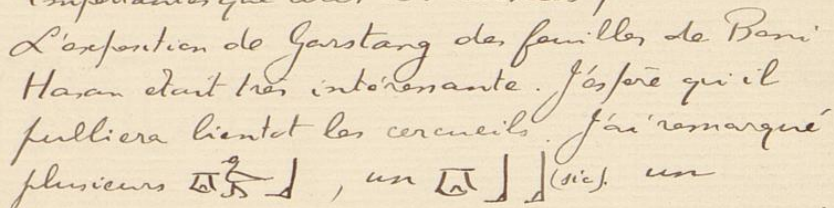 importantes que
L'exposition de Garstang des fouilles de Beni
Hasan était très intéressante. J'espère qu'il
publiera bientot les cercueils. J'ai remarqué
plusieurs , un (sic). un